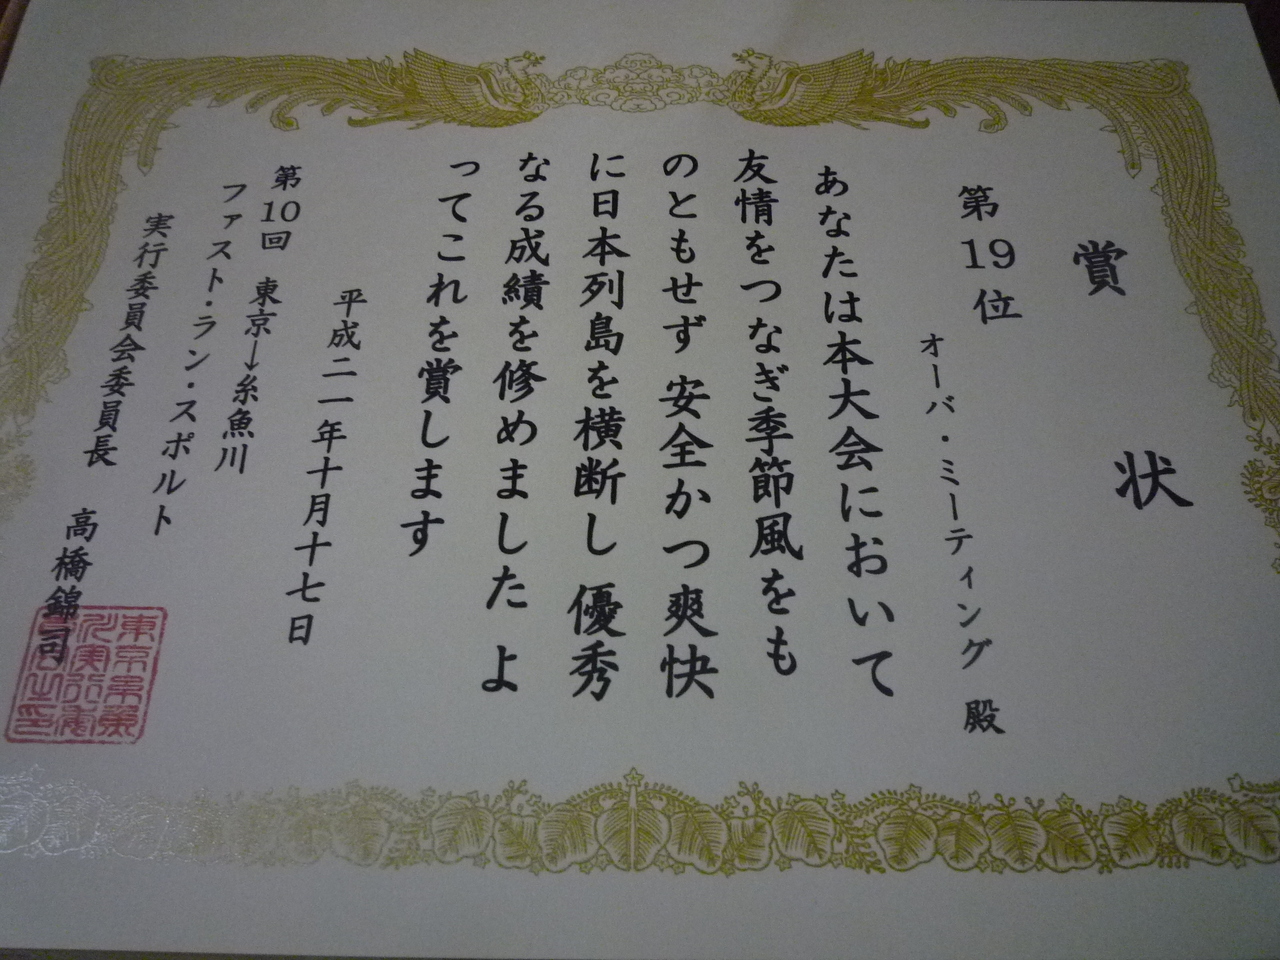 賞状
第19位
オーバ・ミーティング 殿
あなたは本大会において
友情をつなぎ季節風をも
のともせず 安全かつ爽快
に日本列島を横断し 優秀
なる成績を修めました よ
ってこれを賞します
平成二一年十月十七日
第10回 東京→糸魚川
ファスト・ラン・スポルト
実行委員会委員長 高橋錦司